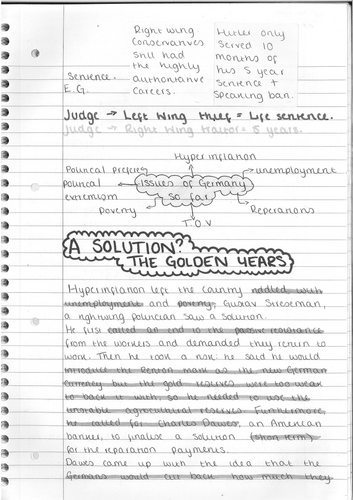 Right wing
Conservatives
still had
the highly
authoritative
careers.
Hitler only
served 10
months of
his 5 year
sentence +
speaking ban.
Sentence.
E.G.
Judge → Left Wing thief = Life sentence.
Judge → Right Wing traitor = 5 years.
Hyperinflation
Political
unemployment
political
extremism
Issues of Germany
so far
Poverty
Reparations
T.O.V
A SOLUTION?
THE GOLDEN YEARS
Hyperinflation left the country riddled with
unemployment and poverty. Gustav Streseman,
a rightwing politician saw a solution.
He first called an end to the passive resistance
from the workers and demanded they return to
work. Then he took a risk: he said he would
introduce the Renton mark as the new German
currency but the gold reserves were too weak
to back it with, so he needed to use the
unstable agricultural reserves. Furthermore,
he called for Charles Dawes, an American
banker, to finalise a solution (short term)
for the reparation payments.
Dawes came up with the idea that the
Germans would cut back how much they